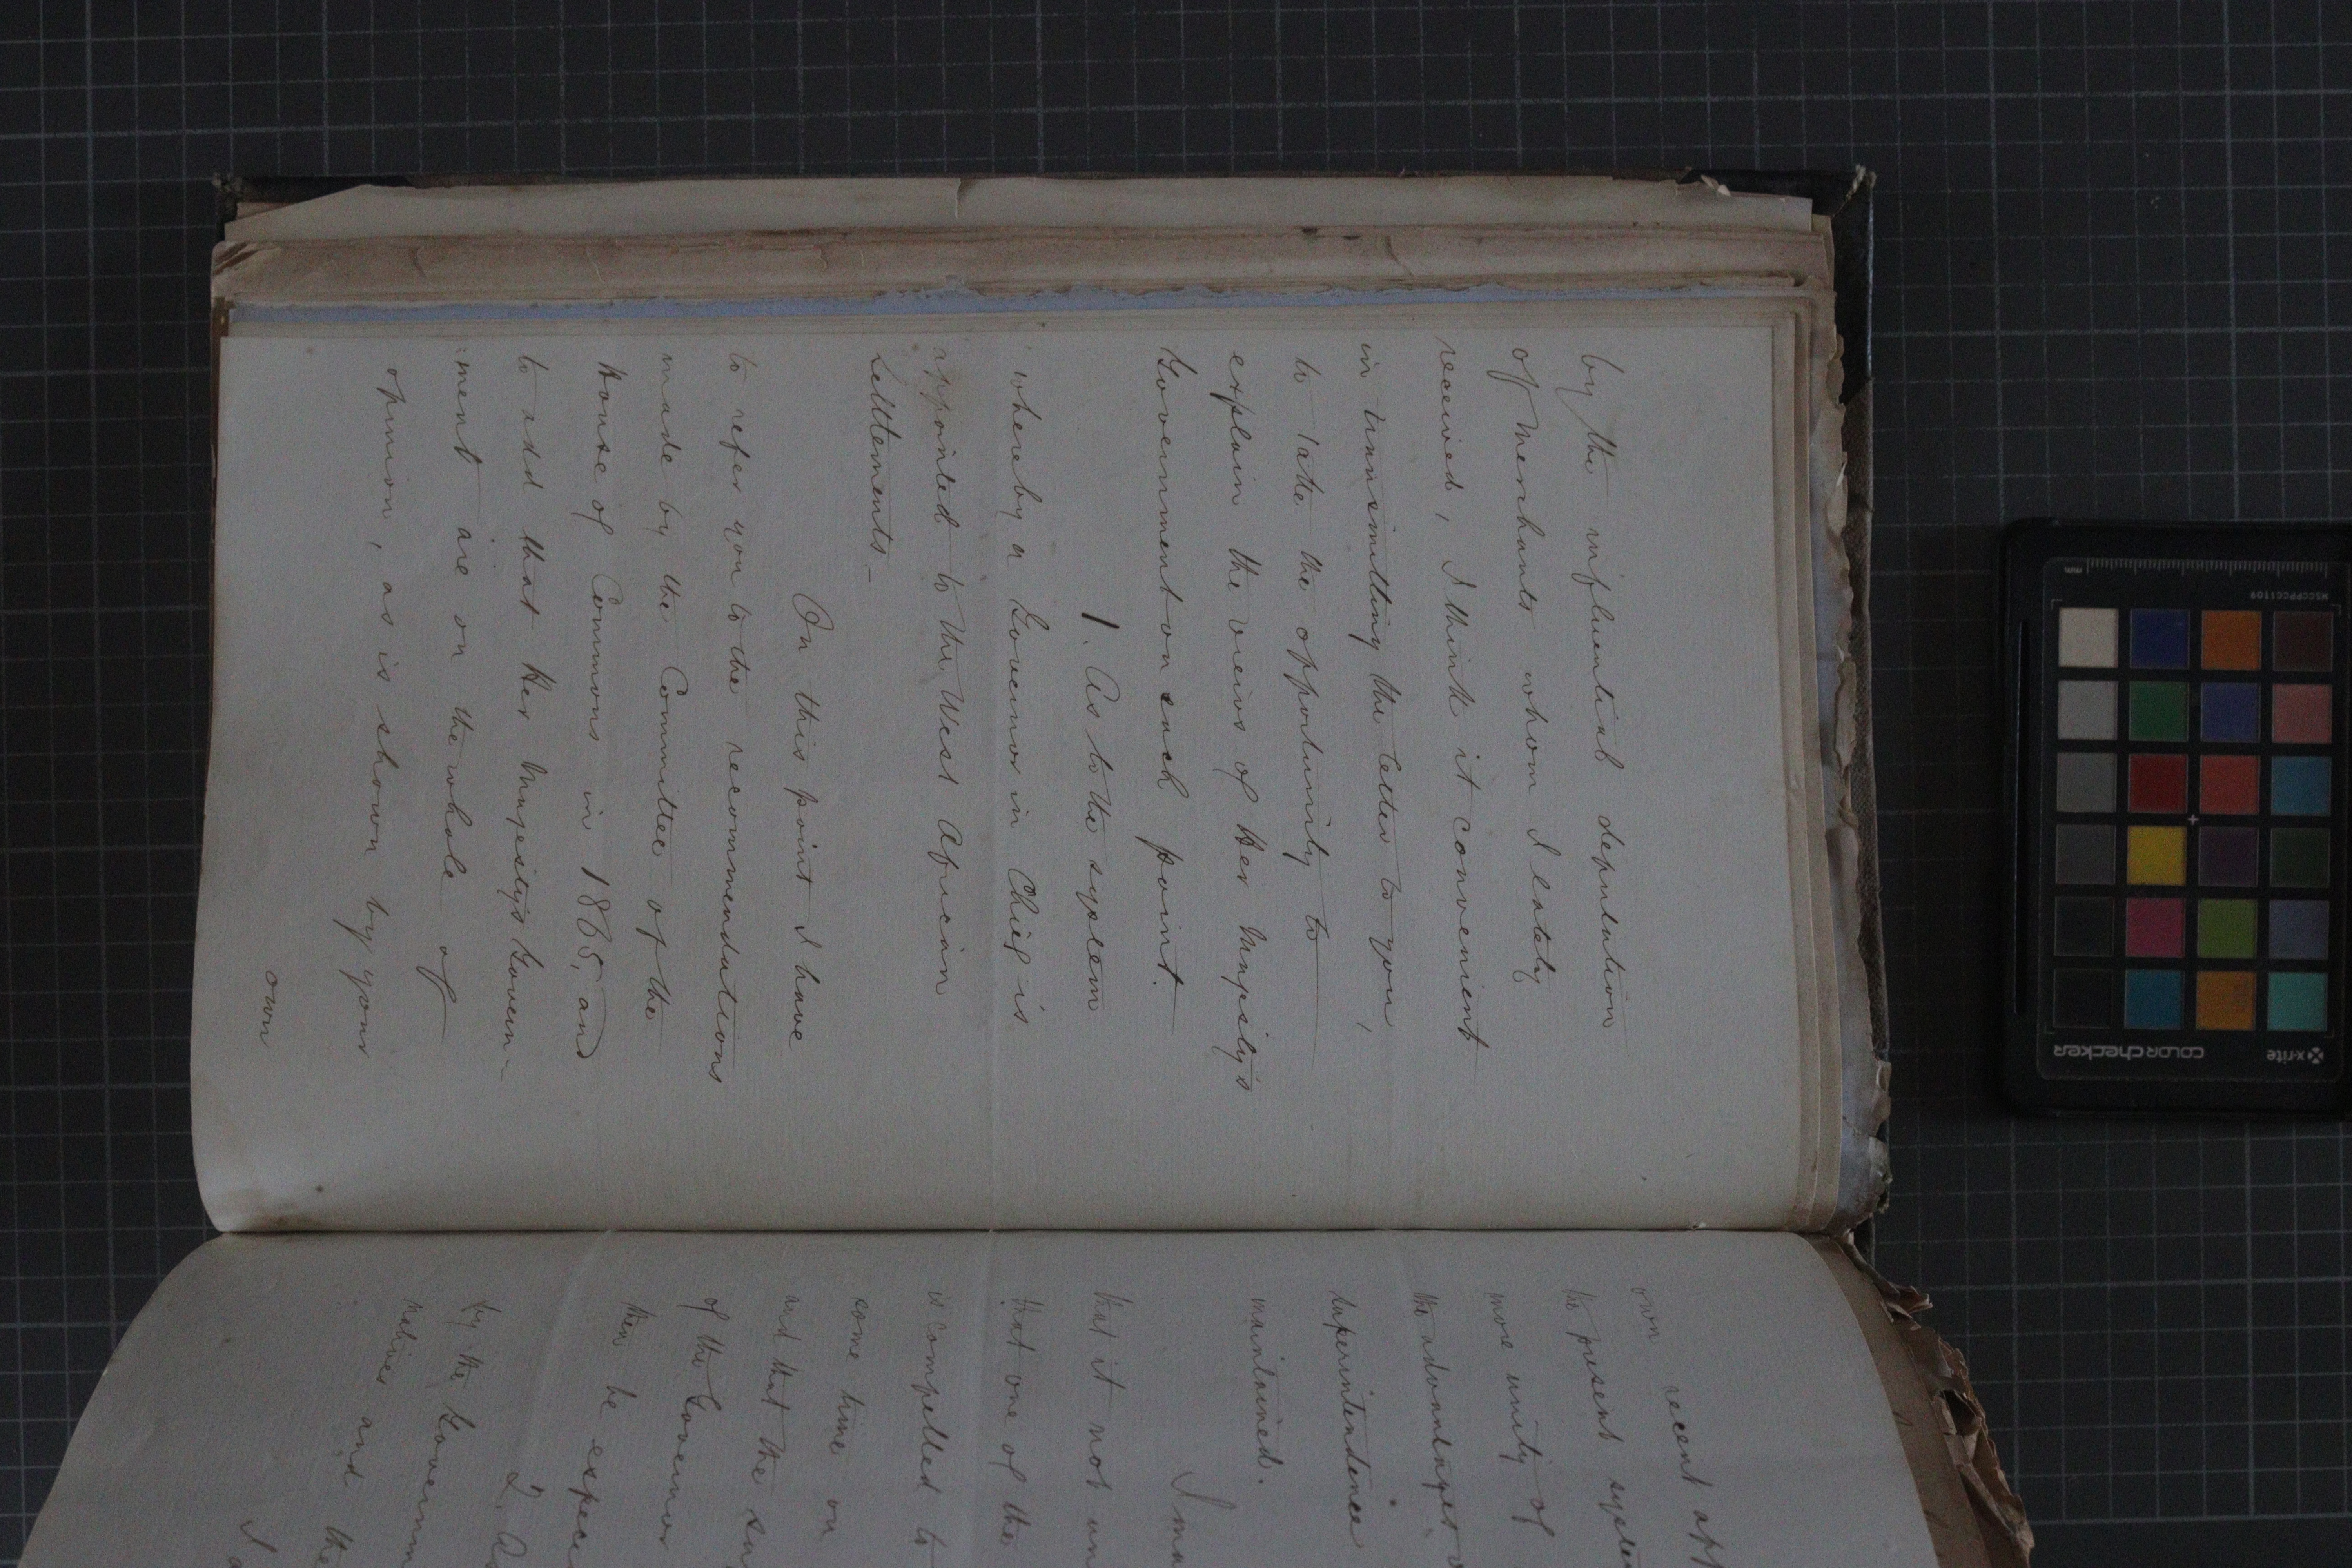 by the influential deputation
of Merchants whom I lately
received, I think it convenient
in transmitting the letter to you,
to take the opportunity to
explain the views of Her Majesty's
Government on each point.
1. As to the system
whereby a Governor in Chief is
appointed to the West African
Settlements_
On this point I have
to refer you to the recommendations
made by the Committee of the
House of Commons in 1865, and
to add that Her Majesty's Govern-
ment are on the whole of
opinion, as is shown by your
own
own recent app
the present system
more unity of
the advantages
superintendence
maintained.
I ma
that it not un
that one of the
is compelled to
some time on
and that the su
of the Governor
then be espec
2. As
by the Governm
natives and the
I a
x-rite
colorchecker
MSCCPPCC1109
mm